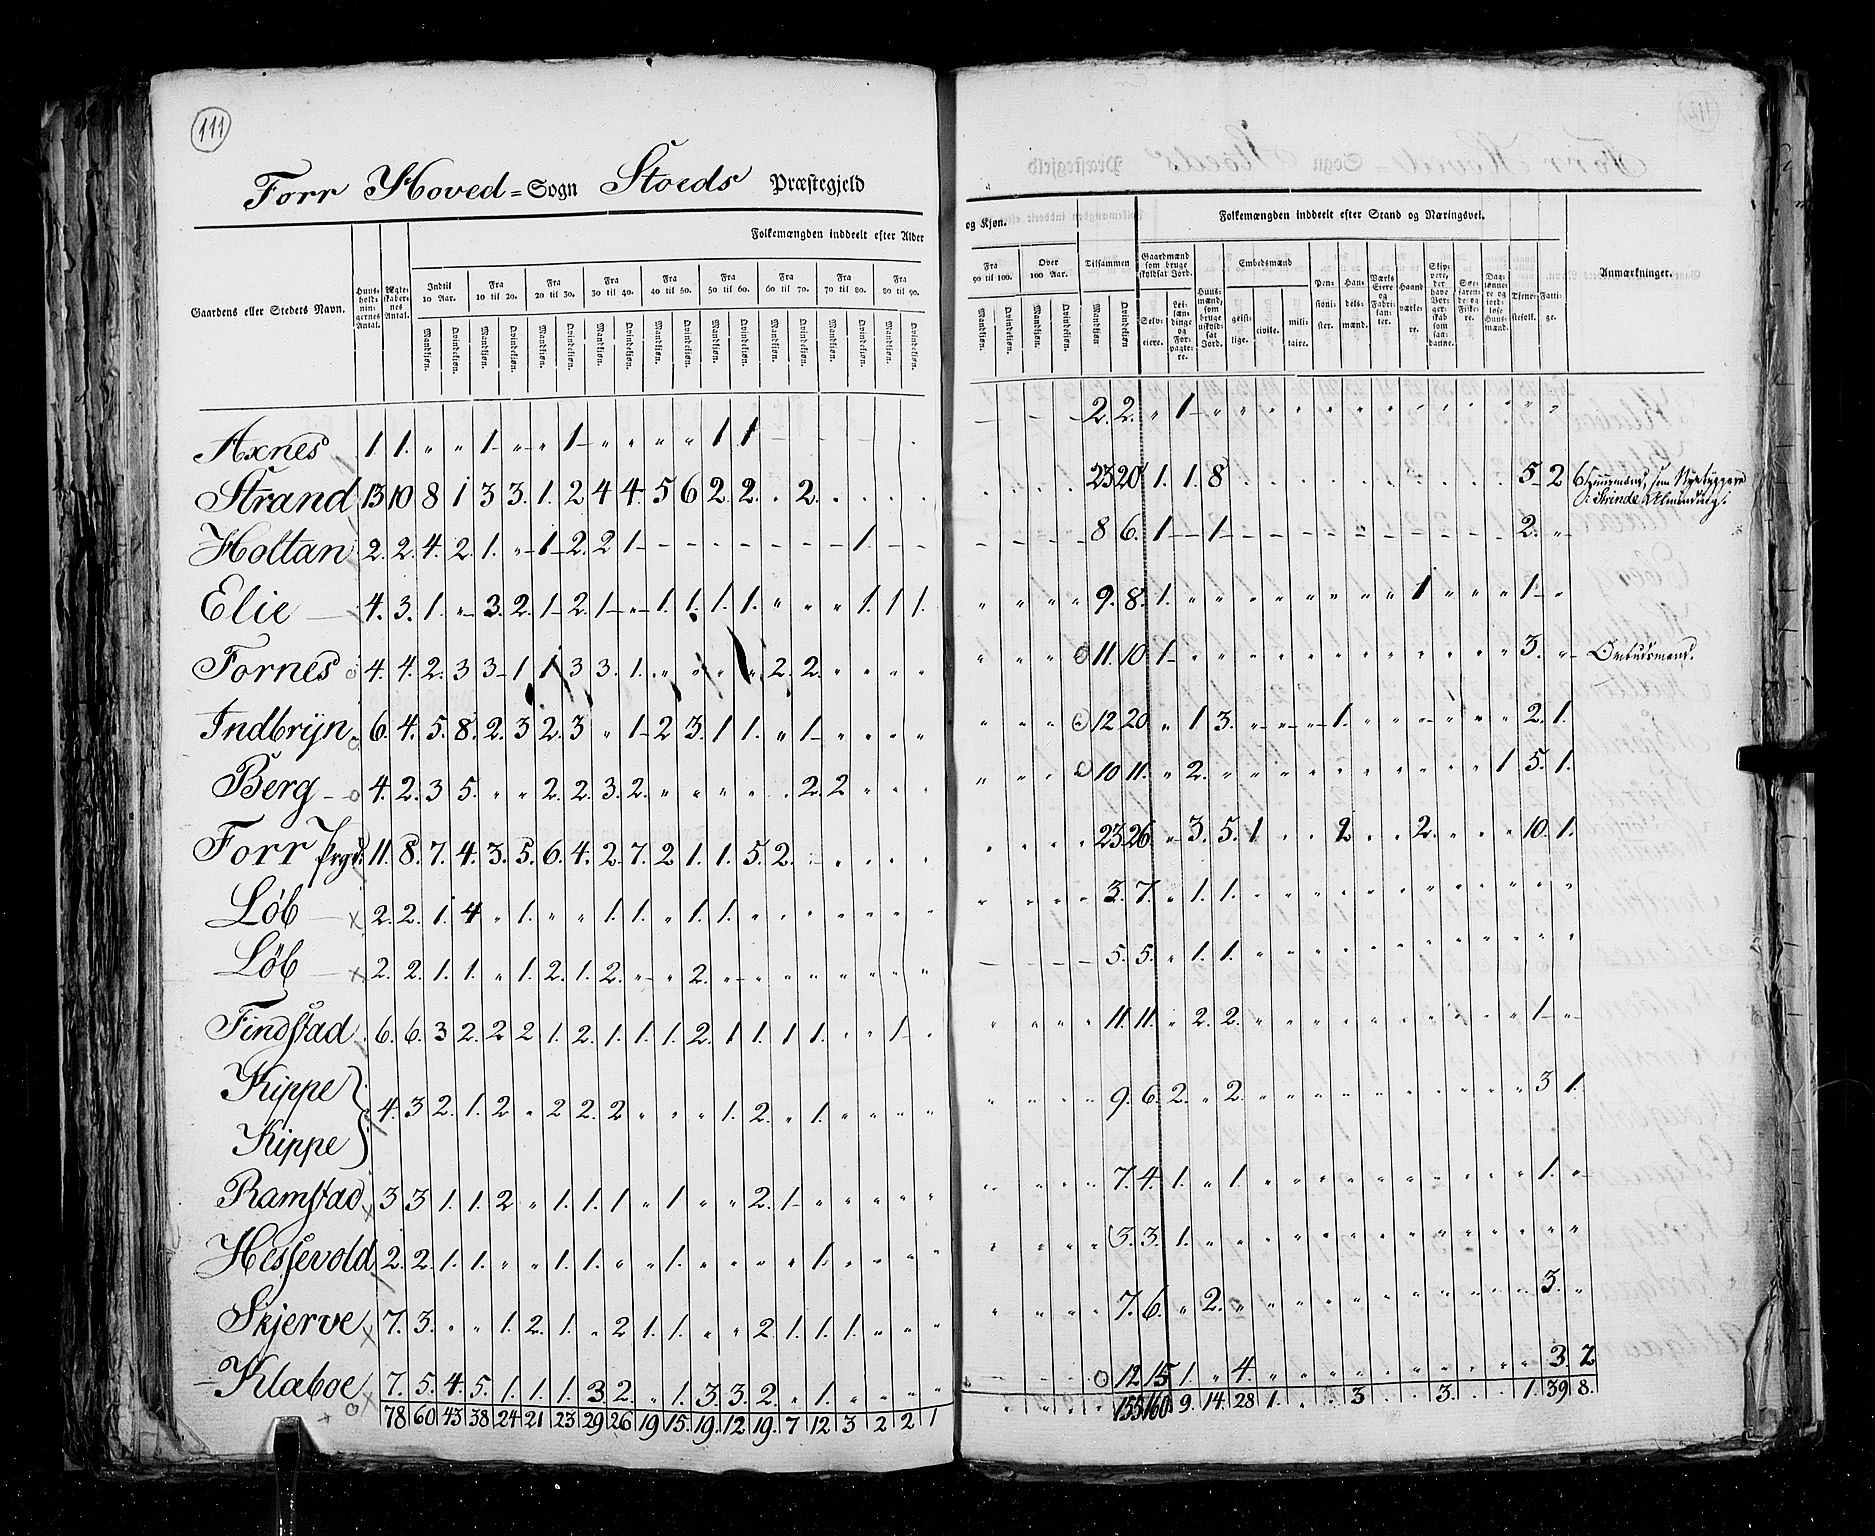 111
Forr Hoved = Sogn Stoeds Præstegjeld
Folkemængden inddeelt efter Alder
og Kjøn.
Folkemængden inddeelt efter Stand og Næringsvei.
Gaardens eller Stedets Navn.
Huus-holdningernes Antal.
Ægteskabernes Antal.
Indtil 10 Aar.
Fra 10 til 20.
Fra 20 til 30.
Fra 30 til 40.
Fra 40 til 50.
Fra 50 til 60.
Fra 60 til 70.
Fra 70 til 80.
Fra 80 til 90.
Fra 90 til 100.
Over 100 Aar.
Tilsammen
Mandkjøn. Qvindekjøn.
Gaardmænd som bruge skyldsat Jord.
Selveiere.
Leilændinge og Forpagtere.
Huusmænd, som bruge uskyldsat Jord.
Embedsmænd
geistlige.
civile.
militaire.
Pensionister.
Handelsmænd.
Værks Eiere og Fabrikanter.
Haandværkere.
Skippere, der have Borgerskab som saadanne.
Søefarende og Fiskere.
Daglønnere og jordløse Huusmænd.
Tjenestefolk.
Fattige.
Anmærkninger.
Axnes 1. 1. " " 1 " " 1 " " " " 1 1 2. 2. " 1
Strand 13 10 8 1 3 3. 1. 2 4 4 5 6 2. 2. . 2. 23 20 1. 1. 8 5 2 6 Huusmænd, som Nyebyggere
i Brinde Almindinge.
Holtan 2. 2. 4. 2. 1. " 1 2. 2 1 1. 8 6. 1 1 2.
Elie 4. 3. 1. " 3. 2. 1 2. 1 " 1. 1. 1. 1. " " " 1. 1 1. 9. 8. 1. 1 1
Fornes 4. 4. 2. 3 3 1 1 3 3. 1. 2. 2. 11. 10 1 3. Ombudsmand.
Indbrÿn 6. 4. 5. 8. 2. 3 2. 3 " 1 2 3. 1 1. " 1 12 20 " 1 3. 1. 2. 1.
Berg 4. 2. 3 5. " " 2. 2. 3. 2. 2. 2 10 11. " 2. 1 5. 1.
Forr Prgd. 11. 8. 7. 4. 3. 5. 6. 4. 2. 7. 2 1. 1. 5. 2. 23 26 " 3. 5. 1 2 2. 10. 1.
Løb 2. 2. 1. 4 " 1. " " 1. 1. " 1. 1. 3. 7. " 1. 1.
Løb 2. 2. 1. 1. " 1. 2. 1. 2. " " 2. 5. 5. " 1. 1.
Findstad 6. 6. 3 2. 2. 2 1. 2. 1. 1. 1. 2. 1 1. 1 1. " " 1 11. 11. " 2. 2. 1
Kippe
Kippe 4. 3 2. 1. 2 " 2 2. 2 " " " 1. 2. " 1. 9. 6. 2. " 2. 3 1.
Ramstad 3 3 1. 1. 2 " 1. 1. 1 " 1 " " 2. 1 7. 4. 1. " 1. 1.
Hessevold 2. 2. 1. 1. " " 1. 1. " " 1. " " " " 1. 3. 3. 1.
Skjerve 7. 3. " " 1. 2. 1. " 2 1. 1. " " 2. 1. 1. 1. 7. 6. " 2. 3.
Klaboe 7. 5. 4. 5. 1. 1. 1. 3. 2. " 1. 3. 3. 2. " 1. 12 15 1. " 4. 3. 2
78 60 43 38 24 21 23 29 26 19 15. 19. 12 19. 7 12 3 2 2 1 155 160 9. 14. 28 1. 3 3. 1. 39 8.